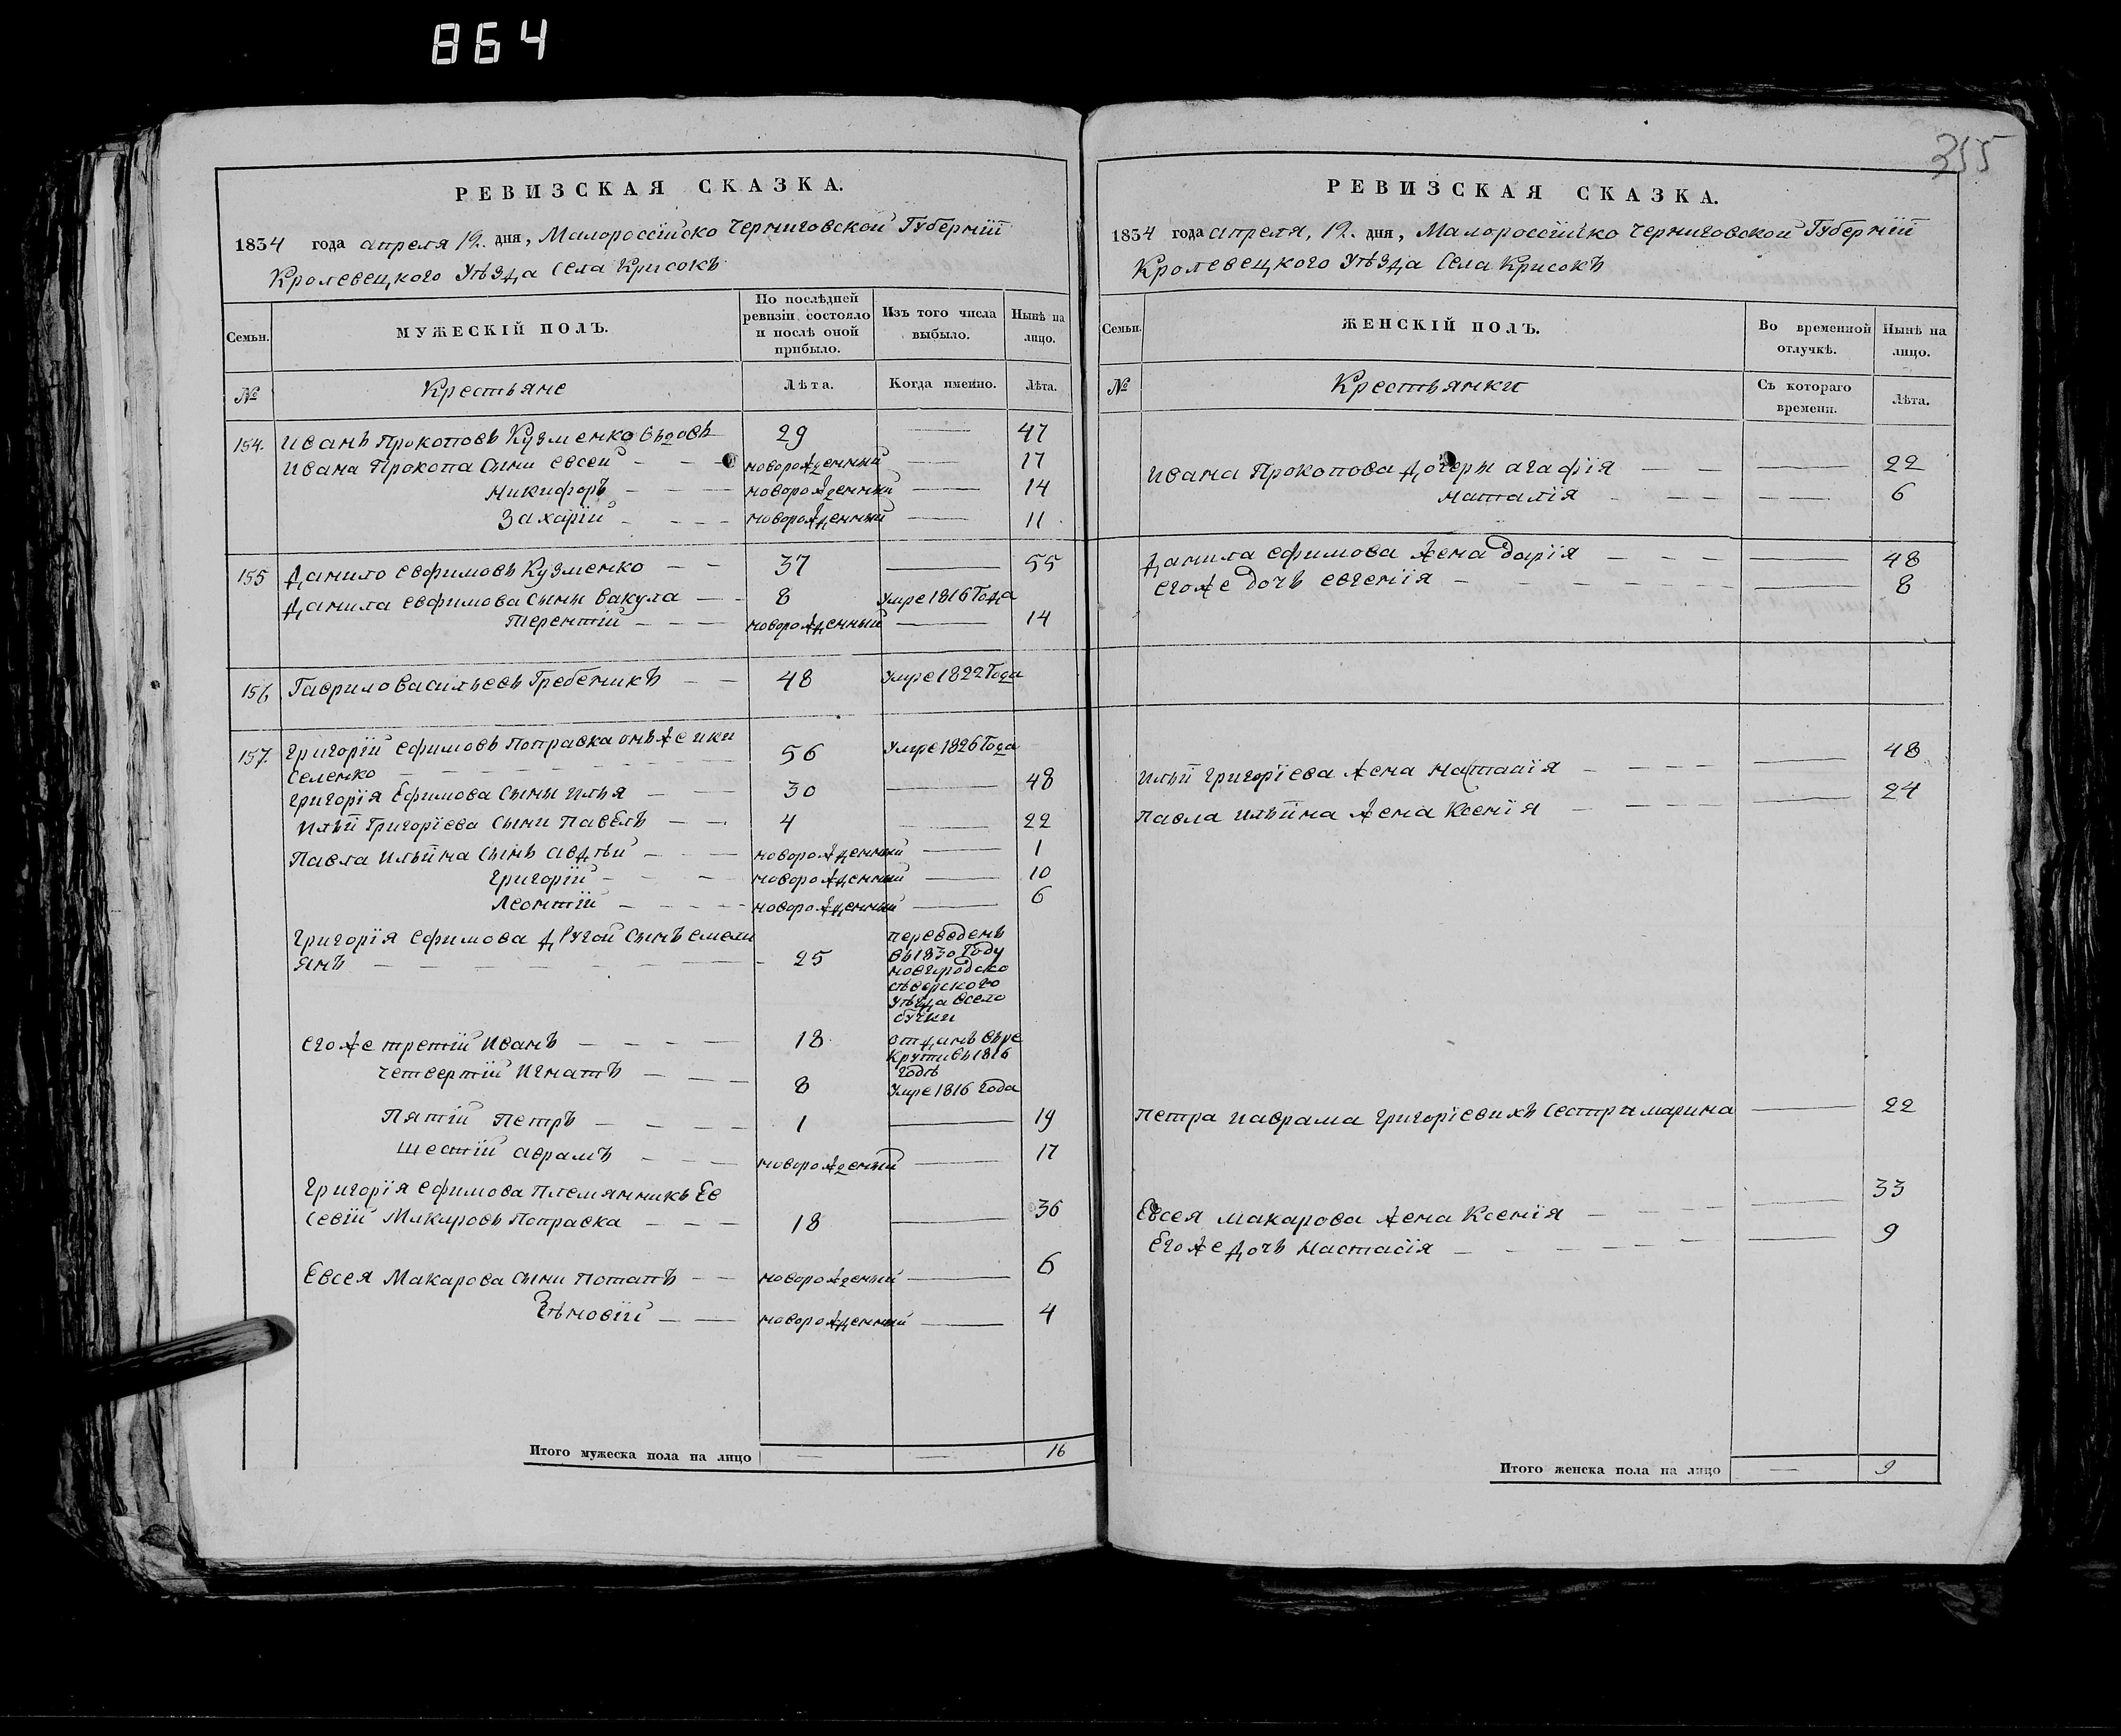 864
355
РЕВИЗСКАЯ СКАЗКА.
1834 года апреля 12. дня, Малороссійско Черниговской Губерніи
Кролевецкого Уѣзда Села Крисокъ
Семьи. МУЖЕСКІЙ ПОЛЪ. По послѣдней ревизіи состояло и послѣ оной прибыло. Изъ того числа выбыло. Нынѣ на лицо.
№ Крестьяне Лѣта. Когда именно. Лѣта.
154. Иванъ Прокоповъ Кузменко вдовъ 29 — 47
Ивана Прокопа Сыни Евсей — новорожденный — 17
Никифоръ — новорожденный — 14
Захарій — новорожденный — 11
155 Данило Евфимовъ Кузменко — 37 — 55
Данила Евфимова Сыни Вакула — 8 Умре 1816 Года
Терентій — новорожденный — 14
156 Гаврило Васильевъ Гребеникъ — 48 Умре 1822 Года
157. Григорій Ефимовъ Поправка онъ же и ки
селенко — 56 Умре 1826 Года
Григорія Ефимова Сыни Илья — 30 — 48
Ильи Григоріева Сыни Павелъ — 4 — 22
Павла Ильина Сынъ Авдѣй — новорожденный — 1
Григорій — новорожденный — 10
Леонтій — новорожденный — 6
Григорія Ефимова другой Сынъ Емели
янъ — 25 переведенъ
въ 1830 Году
новгородско
сѣверского
уѣзда всело
Его же третій Иванъ — 18 отданъ въ ре
крути въ 1816
годѣ
четвертій Игнатъ — 8 Умре 1816 Года
Пятій Петръ — 1 — 19
Шестій Аврамъ — новорожденый — 17
Григорія Ефимова Племянникъ Ев
севій Макаровъ Поправка — 18 — 36
Евсея Макарова Сыни Потапъ — новорожденый — 6
Зѣновій — новорожденный — 4
Итого мужеска пола на лицо — — 16
РЕВИЗСКАЯ СКАЗКА.
1834 года апреля, 12. дня, Малороссійско Черниговской Губерніи
Кролевецкого Уѣзда Села Крисокъ
Семьи. ЖЕНСКІЙ ПОЛЪ. Во временной отлучкѣ. Нынѣ на лицо.
№ Крестьянки Съ котораго времени. Лѣта.
Ивана Прокопова дочери Агафія — — 22
Наталія — — 6
Данила Ефимова жена Дарія — — 48
Его же дочь Евгенія — — 8
Ильи Григоріева жена Настасія — — 48
Павла Ильина жена Ксенія — — 24
Петра и Аврама Григоріевихъ Сестри Марина — 22
Евсея Макарова жена Ксенія — — 33
Его же дочь Настасія — — 9
Итого женска пола на лицо — 9